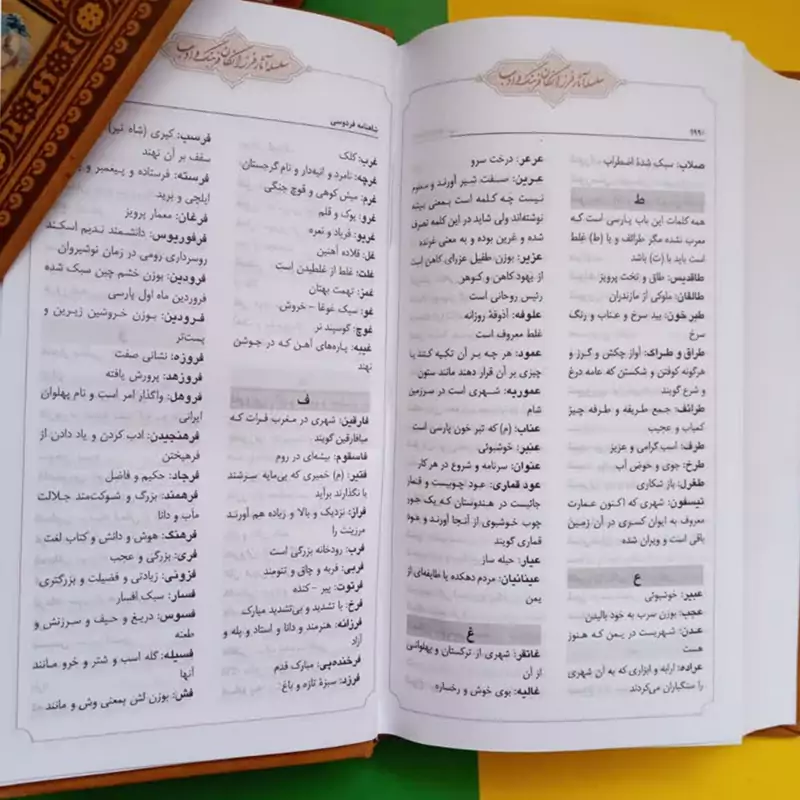 سلسله آثار فرزانگان فرهنگ و ادب
صلاب: سبک شدهٔ اضطراب
ط
همه کلمات این باب پارسی است که
معرب نشده مگر طرائف و یا (ط) غلط
است باید با (ت) باشد
طاقدیس: طاق و تخت پرویز
طالقان: ملوکی از مازندران
طبر خون: بید سرخ و عناب و رنگ
سرخ
طراق و طراک: آواز چکش و گرز و
هرگونه کوفتن و شکستن که عامه درغ
و شرع گویند
طرائف: جمع طریفه و طرفه چیز
کمیاب و عجیب
طرف: اسب گرامی و عزیز
طرخ: جوی و حوض آب
طغرل: باز شکاری
تیسفون: شهری که اکنون عمارت
معروف به ایوان کسری در آن زمین
باقی است و ویران شده
ع
عبیر: خوشبوئی
عجب: بوزن سرب به خود بالیدن
عدن: شهریست در یمن که هنوز
هست
عراده: ارابه و ابزاری که به آن شهری
را سنگباران می‌کردند
عرعر: درخت سرو
عرین: صفت شیر آورند و معلوم
نیست چه کلمه است بمعنی بیشه
نوشته‌اند ولی شاید در این کلمه تصرف
شده و غرین بوده و به معنی غرنده
عزیر: بوزن طفیل عزرای کاهن است
از یهود کاهن و کوهن
رئیس روحانی است
علوفه: آذوقهٔ روزانه
غلط معروف است
عمود: هر چه بر آن تکیه کنند یا
چیزی بر آن قرار دهند مانند ستون
عموریه: شهری است در سرزمین
شام
عناب: (م) که تبر خون پارسی است
عنبر: خوشبوئی
عنوان: سرنامه و شروع در هر کار
عود قماری: عود چوبیست و قمار
جائیست در هندوستان که یک جور
چوب خوشبوی از آنجا آورند و عود
قماری گویند
عیار: حیله ساز
عینانیان: مردم دهکده یا طایفه‌ای از
یمن
غ
غاتفر: شهری از ترکستان و پهلوانی
از آن
غالیه: بوی خوش و رخساره
سلسله آثار فرزانگان فرهنگ و ادب
شاهنامه فردوسی
غرب: کلک
غرچه: نامرد و انیه‌دار و نام گرجستان
غرم: میش کوهی و قوچ جنگی
غرو: پوک و قلم
غریو: فریاد و نعره
غل: قلاده آهنین
غلت: غلط از غلطیدن است
غمز: تهمت بهتان
غو: سبک غوغا - خروش
غوچ: گوسپند نر
غیبه: پاره‌های آهن که در جوشن
نهند
ف
فارقین: شهری در مغرب فرات که
میافارقین گویند
فاسقوم: بیشه‌ای در روم
فتیر: (م) خمیری که بی‌مایه سرشند
یا نگذارند برآید
فراز: نزدیک و بالا و زیاده هم آورند
مرزینت را
فرب: رودخانه بزرگی است
فربی: فربه و چاق و تنومند
فرتوت: پیر - کنده
فرخ: با تشدید و بی‌تشدید مبارک
فرزانه: هنرمند و دانا و استاد و یله و
آزاد
فرخنده‌پی: مبارک قدم
فرزد: سبزهٔ تازه و باغ
فرسب: کیری (شاه تیر)
سقف بر آن نهند
فرسته: فرستاده و پیغمبر و
ایلچی و برید
فرغان: معمار پرویز
فرفوریوس: دانشمند ندیم اسکند
روسرداری رومی در زمان نوشیروان
فرودین: بوزن خشم چین سبک شده
فروردین ماه اول پارسی
فرودین: بوزن خروشین زیرین و
پست‌تر
فروزه: نشانی صفت
فروزهد: پرورش یافته
فروهل: واگذار امر است و نام پهلوان
ایرانی
فرهنجیدن: ادب کردن و یاد دادن از
فرهیختن
فرچاد: حکیم و فاضل
فرهمند: بزرگ و شوکت‌مند جلالت
مآب و دانا
فرهنگ: هوش و دانش و کتاب لغت
فری: بزرگی و عجب
فزونی: زیادتی و فضیلت و بزرگتری
فسار: سبک افسار
فسوس: دریغ و حیف و سرزنش و
طعنه
فسیله: گله اسب و شتر و خرو مانند
آنها
فش: بوزن لش بمعنی وش و مانند